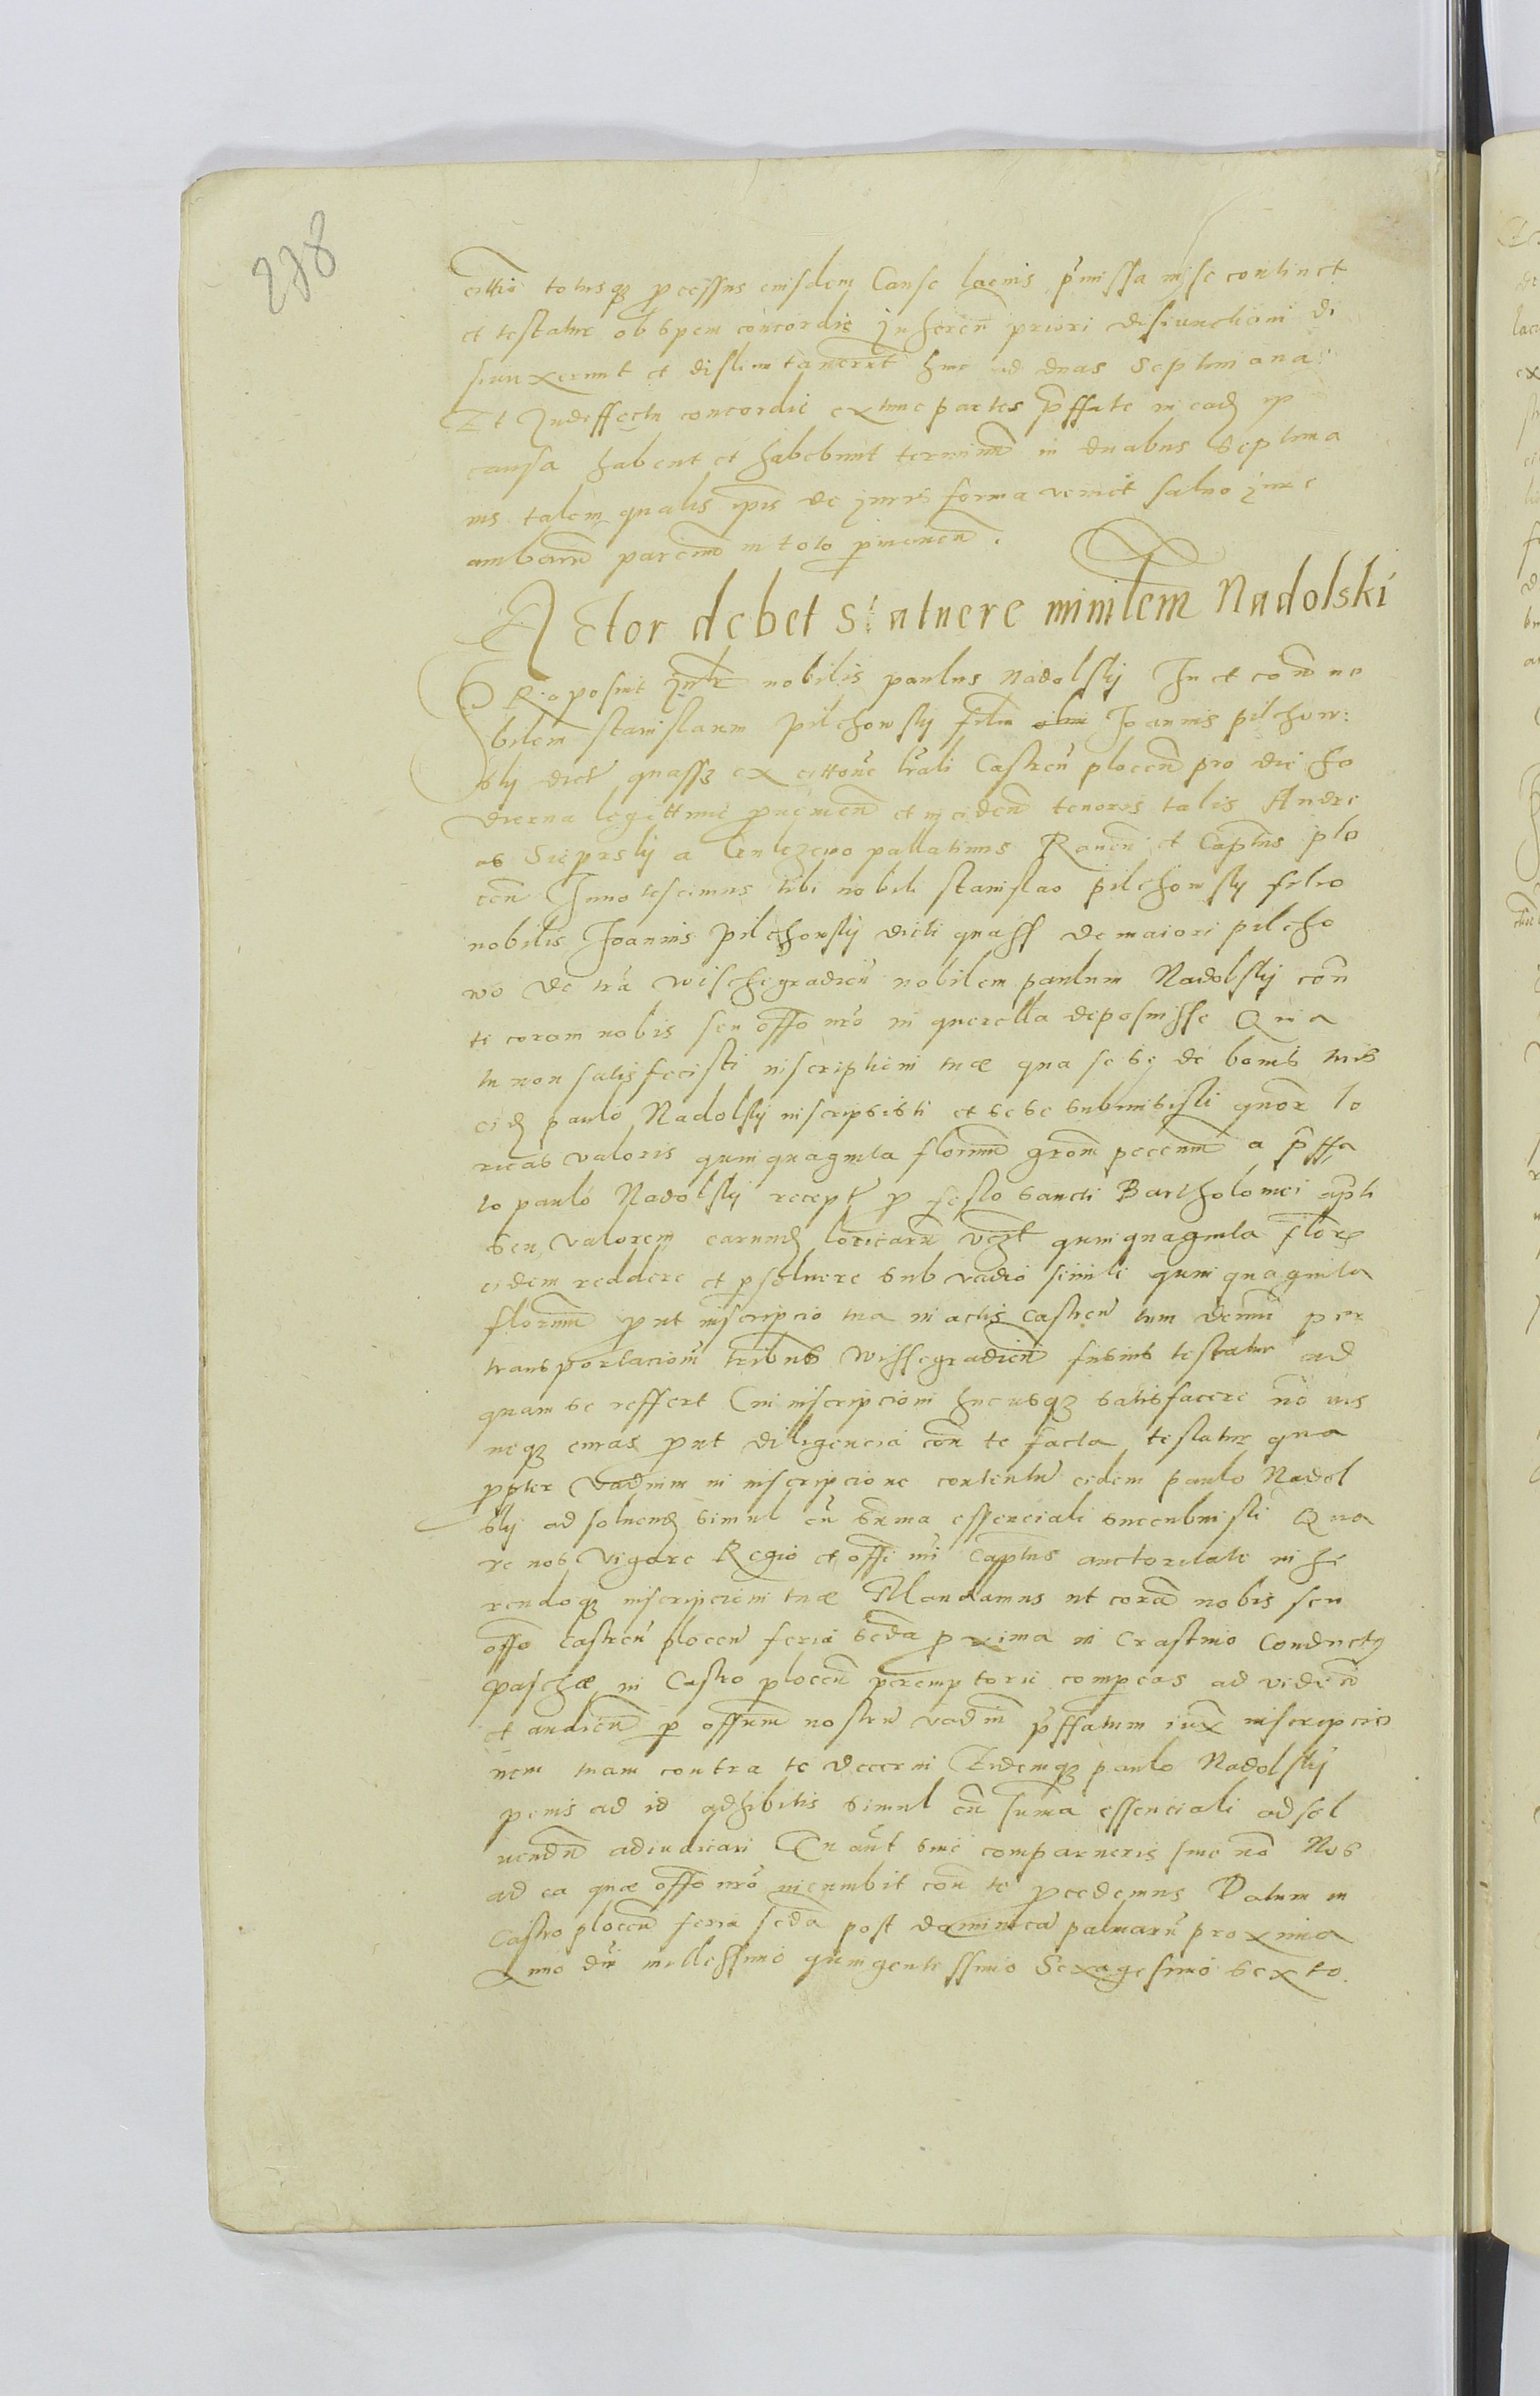 278
cittio totusq processus eiusdem Cause lacius pmissa in se continet
et testatur ob spem concordie Inheren priori disiunctioni di
siunxerunt et dislimitaverunt hinc ad duas Septimana
Et Indeffectu concordie extunc partes pffate in eadq
causa habent et habebunt terminu in duabus Septima
nis talem qualis ipis de juris forma veniet salvo jure
ambaru parciu in toto pmanen.
Actor debet statuere minilem Nadolski
PRoposuit nobilis paulus Nadolskij In et con no
bilem stanislaum Pilchowskij filiu olim Joannis pilchow:
skij dict quassz ex cittone lrali Castren plocen pro die ho
dierna legittime pvenien et eiden tenoris talis Andre
as Sieprskij a pallatinus Raven et Captus plo
cen Innotescimus tibi nobili stanislao pilchowskij filio
nobilis Joannis Pilchowskij dicti quass de maiori pilcho
wo de tra wischegradien nobilem paulum Nadolskij con
te coram nobis seu offo nro in querella deposuisse Quia
tu non satisfecisti inscriptioni tuæ qua se de bonis tuis
eidq paulo Nadolskij inscripsisti et sese submisisti quor lo
ricas valoris quinquaginta florenu grom pecunm a pffa
to paulo Nadolskij recept p festo sancti Bartholomei apli
seu valorem earumdq loricaru vczt quinquaginta flor
eidem reddere et psolvere sub vadio simili quinquaginta
florenu put inscripcio tua in actis castren tum demu per
transportacionem tribus wissegradien fusius testatur ad
quam se reffert Cui inscripcioni hucusqz satisfacere no vis
neqz curas put diligencia con te facta testatur qua
ppter vadium in inscripcione contentu eidem paulo Nadol
skij adsolvendq simul cu suma essenciali succubuisti Qua
re nos vigore Regio et offi nri Captus auctoritate inhe
rendoqz inscripcioni tuæ Mandamus ut cora nobis seu
offo castren plocen feria scda proxima in Crastino Conductq
paschæ in Castro plocen peremptorie compeas ad viden
et audien p offum nostru vadiu pffatum iux inscripcio
nem tuam contra te decerni Eidemqz paulo Nadolskij
penis ad id adhibitis simul cu suma essenciali adsol
vendu adiudicari Tu aut sive comparueris sive no Nos
ad ea quæ offo nro incumbit con te pcedemus Datum in
Castro plocen feria scda post dominica palmaru proxima
Anno dni millessimo quingentessimo Sexagesimo sexto.